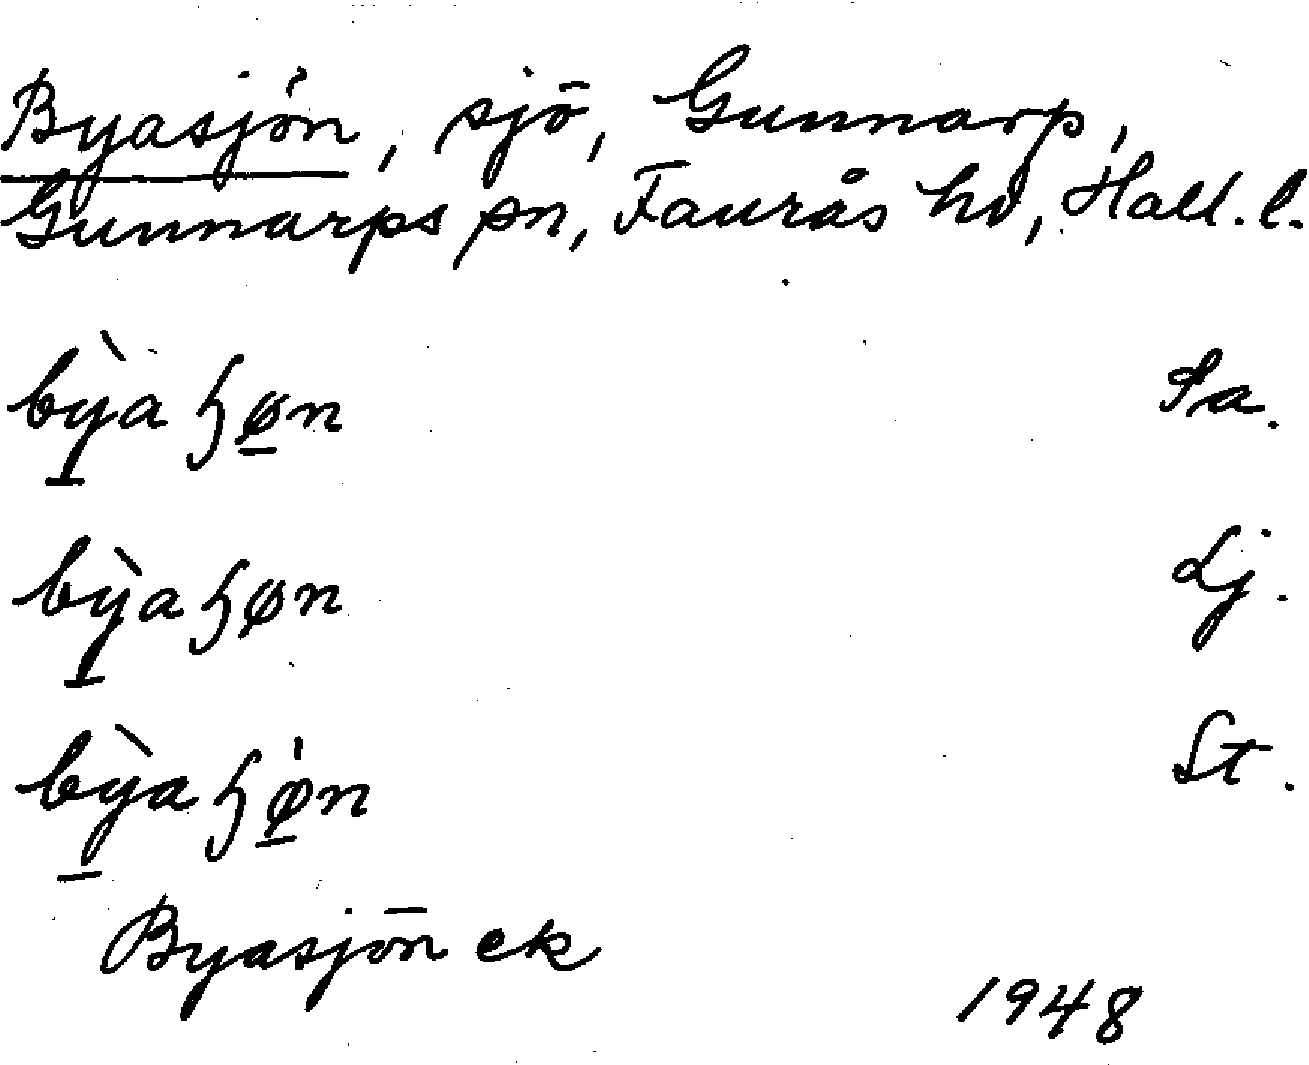 Byasjön, sjö, Gunnarp,
Gunnarps sn, Faurås hd, Hall. l.
bỳ̠a ɧø̠n Sa.
bỳ̠a ɧøn Lj.
bỳ̠a ɧø̠̍n St.
Byasjön ek
1948